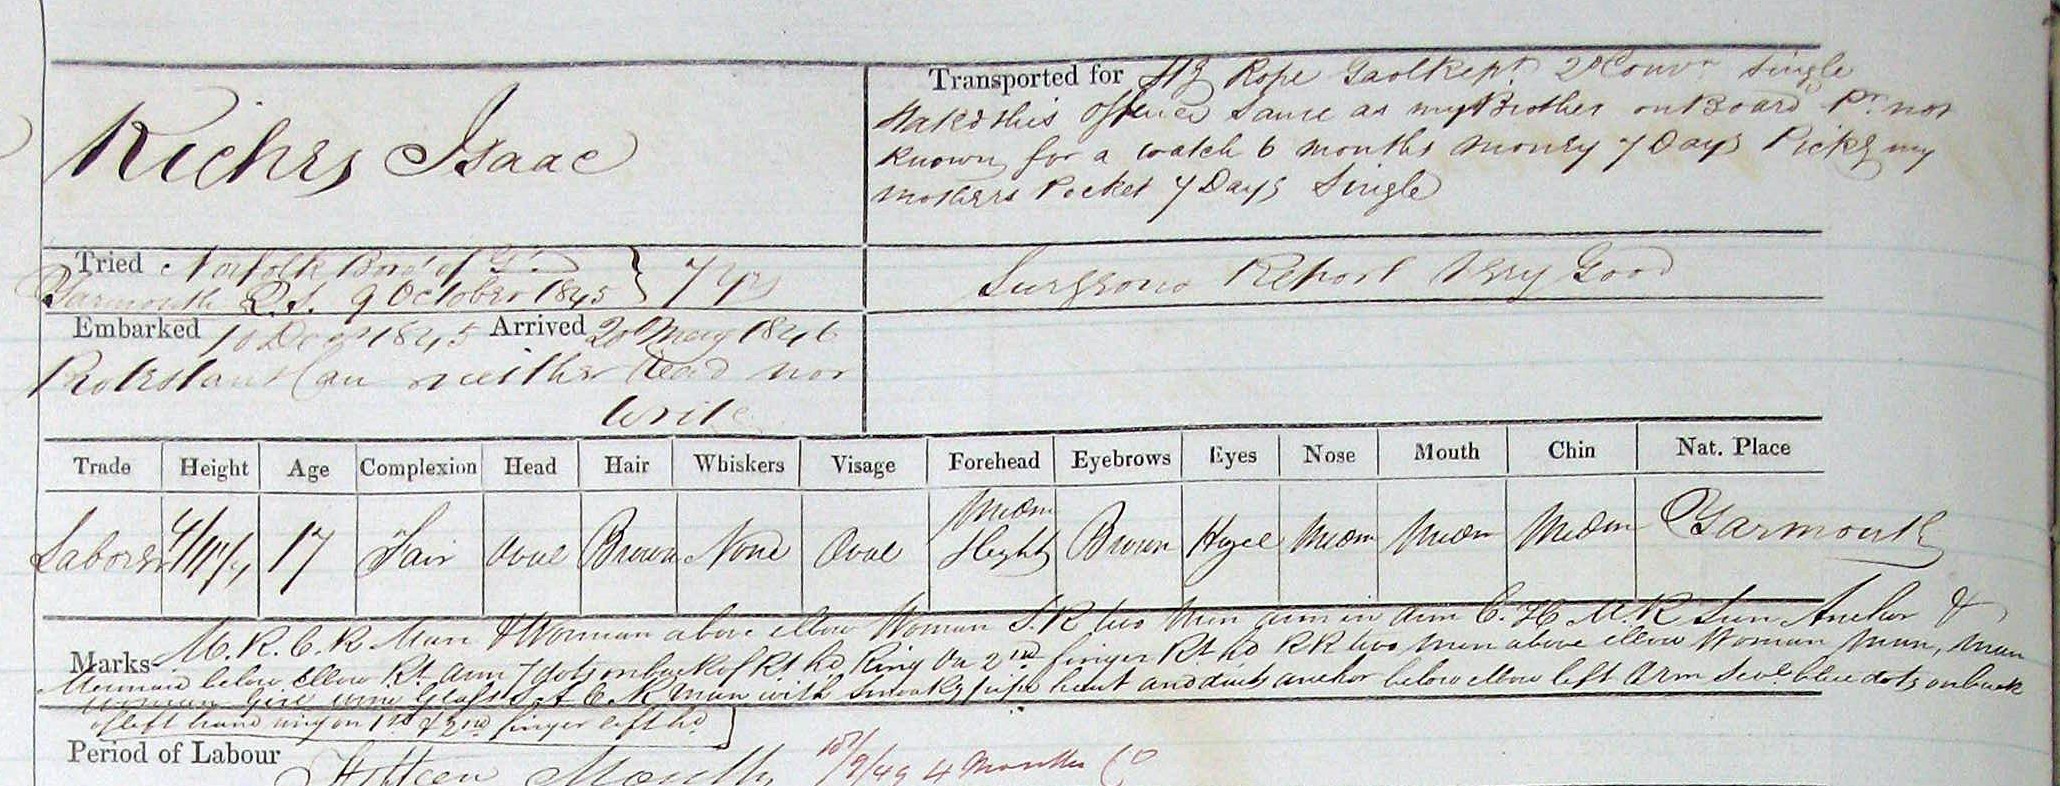 Riches Isaac
Transported for Stg Rope Gaol Rept 2d Conv.n Single
Stated this Offence Same as my Brother on Board Pr. not
known for a watch 6 months money 7 Days Pickg my
mothers Pocket 7 Days Single
Tried Norfolk Boro' of Gt.
Yarmouth Q.S. 9 October 1845 } 7 Yrs
Surgeons Report Very Good
Embarked 10 Dec 1845 Arrived 20 May 1846
Protestant Can neither Read nor
Write
Trade Height Age Complexion Head Hair Whiskers Visage Forehead Eyebrows Eyes Nose Mouth Chin Nat. Place
Laborer 4/11 17 Fair Oval Brown None Oval Medm Height Brown Medm Medm Medm Yarmouth
Marks M.R. C.R Man & Woman above elbow Woman S.R two Men arm in arm C. H M.R Sun Anchor &
Mermaid below elbow Rt arm 7 dots on back of Rt hd Ring on 2nd finger Rt hd R R two men above elbow Woman Man, man
woman Girl wine Glass C R man with smoking pipe heart and darts anchor below elbow left arm Sevl blue dots on back
of left hand ring on 1st & 2nd finger left hd
Period of Labour Fifteen Months 4 Months